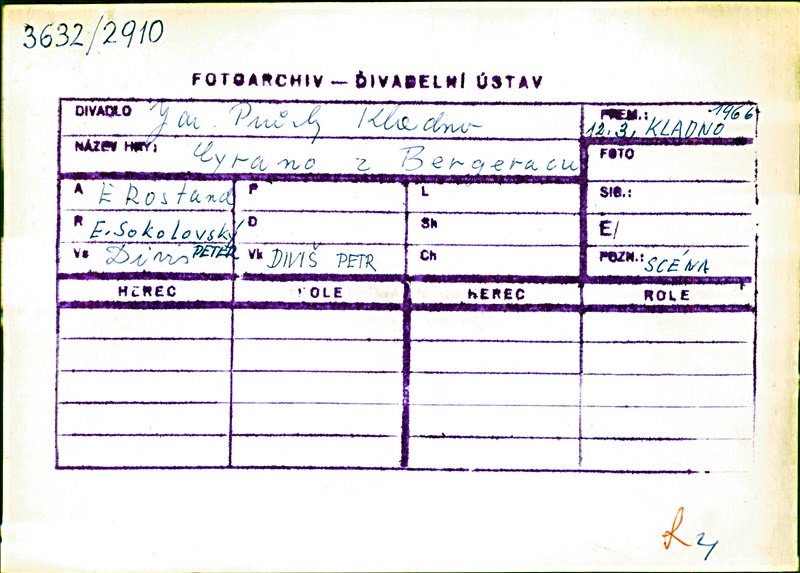 3632/2910
FOTOARCHIV — DIVADELNÍ ÚSTAV
DIVADLO Jar. Průchy Kladno
PREM.: 1966
12.3. KLADNO
NÁZEV HRY: Cyrano z Bergeracu
FOTO
A E Rostand P L SIG.:
R E. Sokolovský D Sh E/
Vs Diviš PETER Vk DIVIŠ PETR Ch POZN.: SCÉNA
HEREC ROLE HEREC ROLE